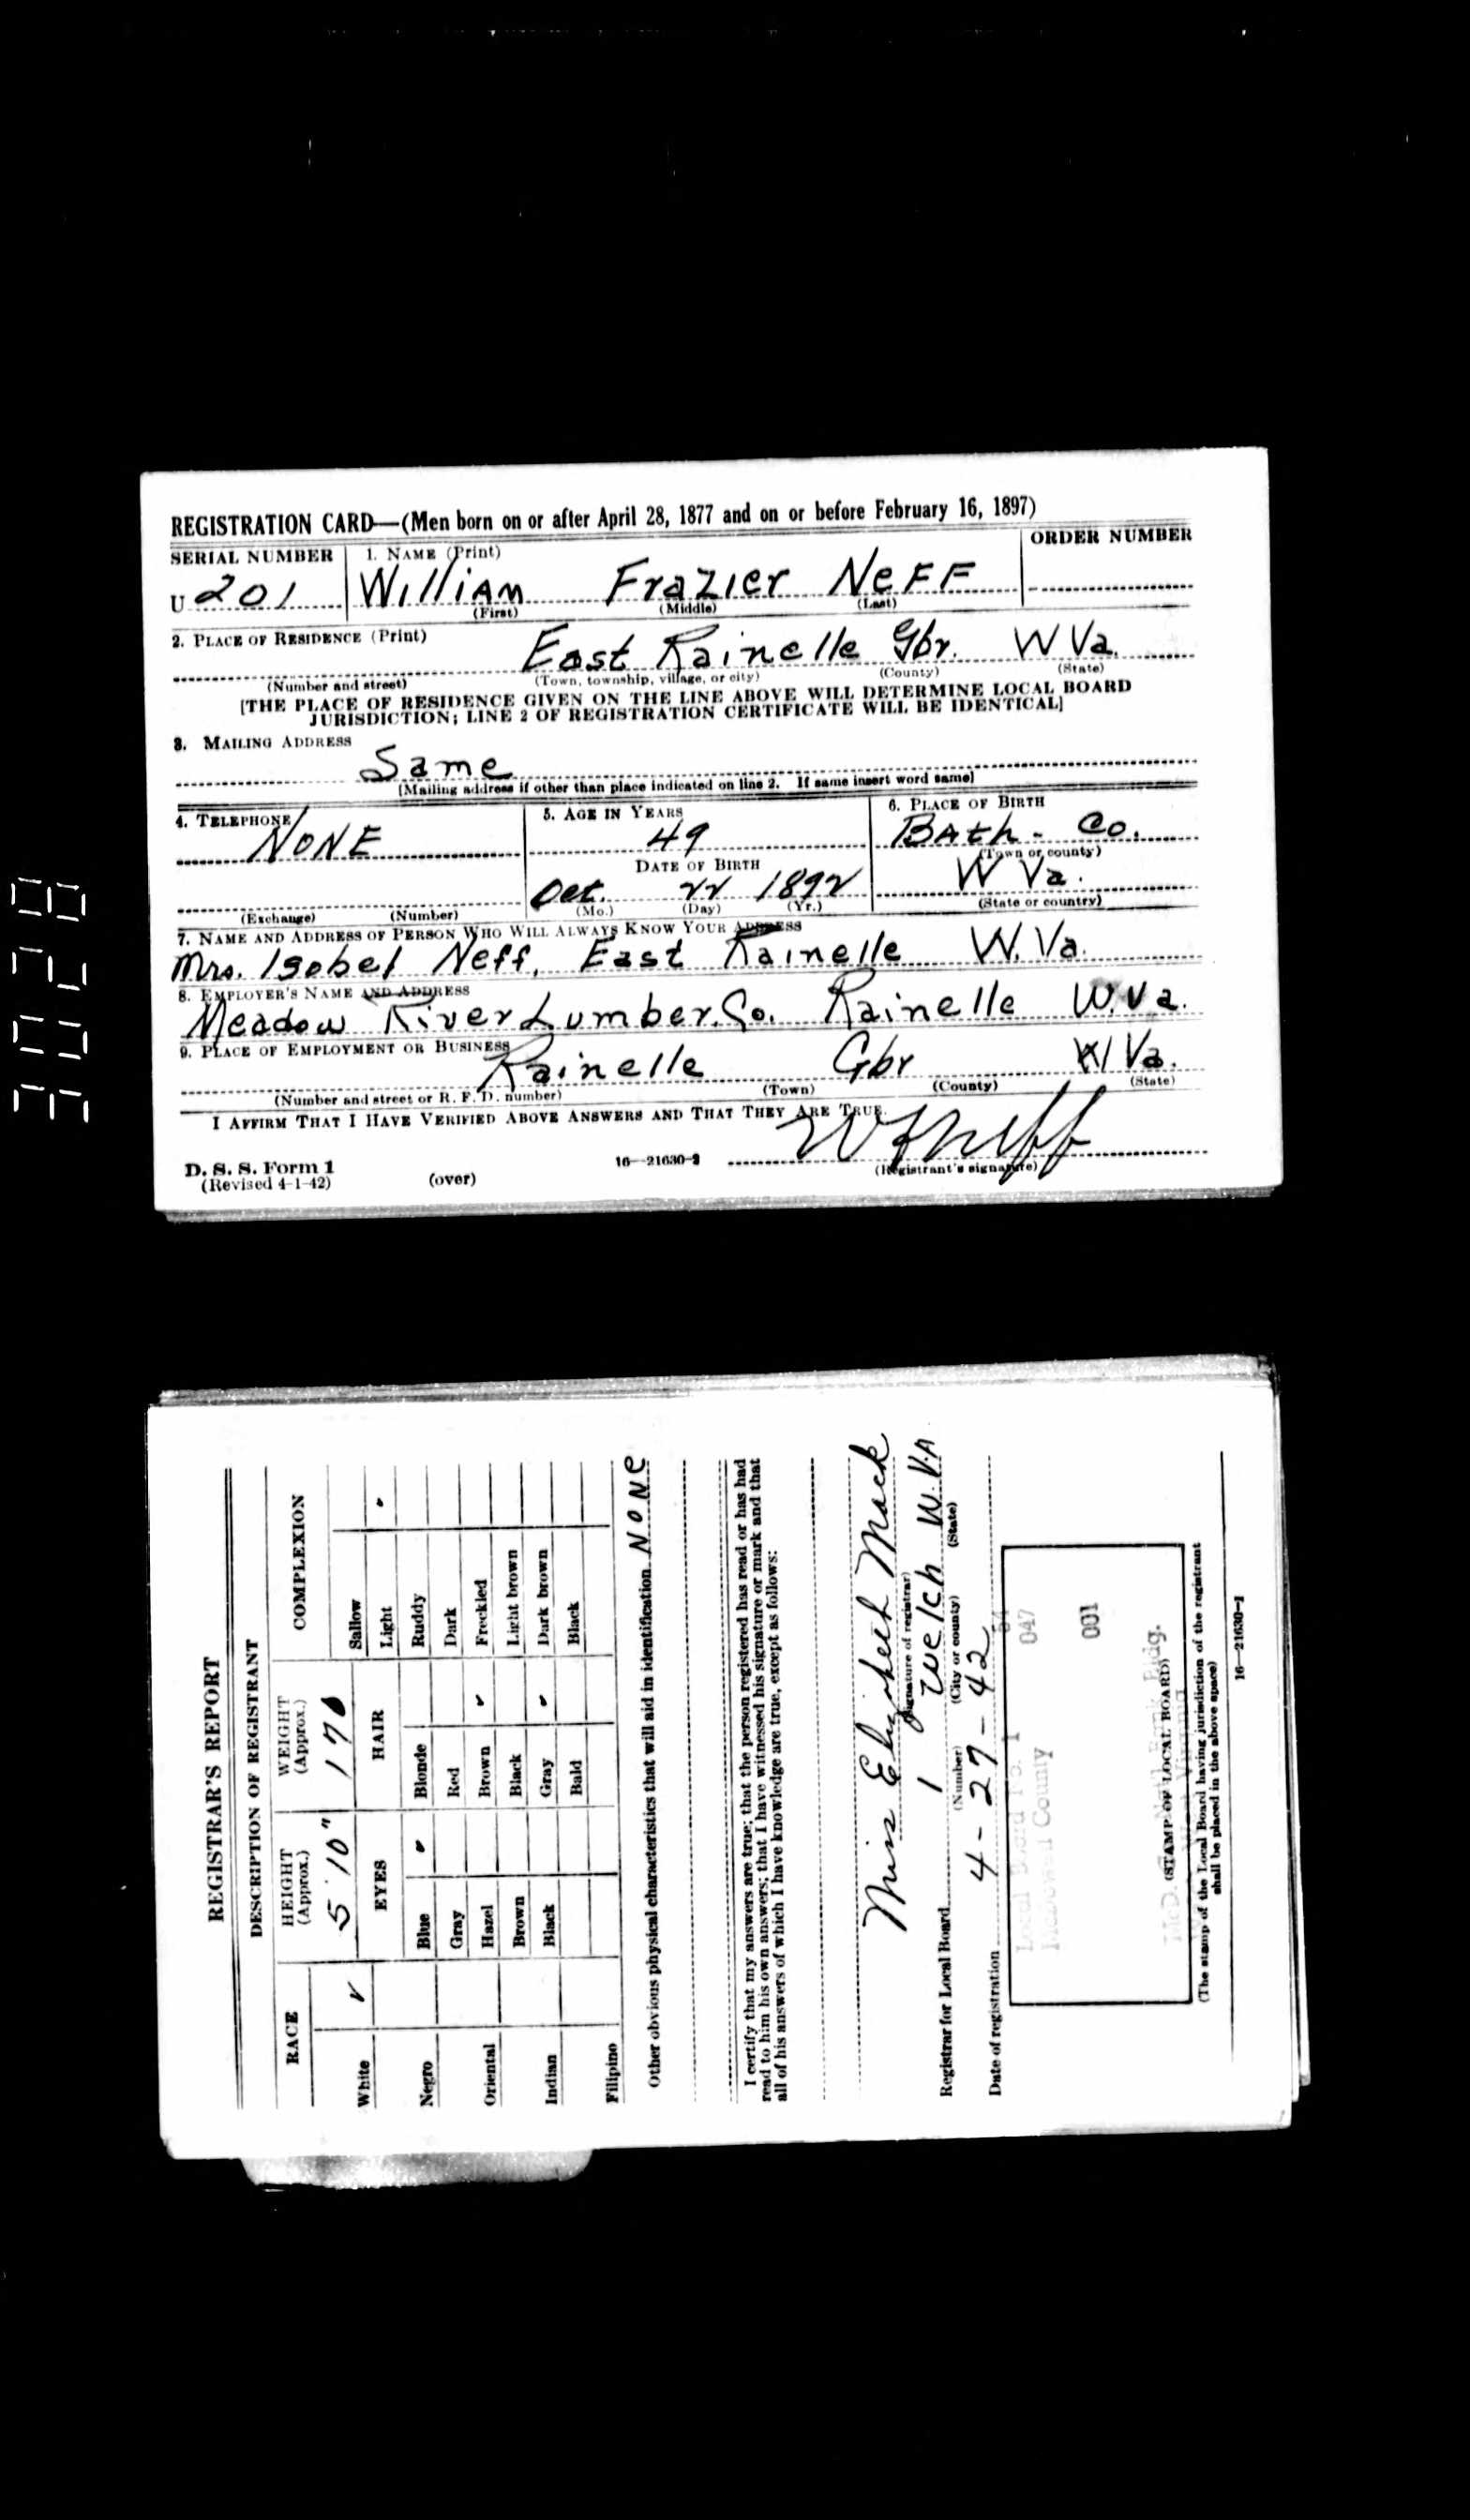 REGISTRATION CARD—(Men born on or after April 28, 1877 and on or before February 16, 1897)
SERIAL NUMBER 1. NAME (Print) ORDER NUMBER
U 201 William Frazier Neff
(First) (Middle) (Last)
2. PLACE OF RESIDENCE (Print)
East Rainelle Gbr. W Va.
(Number and street) (Town, township, village, or city) (County) (State)
[THE PLACE OF RESIDENCE GIVEN ON THE LINE ABOVE WILL DETERMINE LOCAL BOARD
JURISDICTION; LINE 2 OF REGISTRATION CERTIFICATE WILL BE IDENTICAL]
3. MAILING ADDRESS
Same
[Mailing address if other than place indicated on line 2. If same insert word same]
4. TELEPHONE 5. AGE IN YEARS 6. PLACE OF BIRTH
NONE 49 Bath - Co.
(Town or county)
DATE OF BIRTH
Oct. 22 1892 W Va.
(Exchange) (Number) (Mo.) (Day) (Yr.) (State or country)
7. NAME AND ADDRESS OF PERSON WHO WILL ALWAYS KNOW YOUR ADDRESS
Mrs. Isobel Neff, East Rainelle W. Va.
8. EMPLOYER'S NAME AND ADDRESS
Meadow River Lumber. Co. Rainelle W. Va.
9. PLACE OF EMPLOYMENT OR BUSINESS
Rainelle Gbr W Va.
(Number and street or R. F. D. number) (Town) (County) (State)
I AFFIRM THAT I HAVE VERIFIED ABOVE ANSWERS AND THAT THEY ARE TRUE.
W F Neff
D. S. S. Form 1 16—21630-2 (Registrant's signature)
(Revised 4-1-42) (over)
30228
REGISTRAR'S REPORT
DESCRIPTION OF REGISTRANT
RACE HEIGHT (Approx.) WEIGHT (Approx.) COMPLEXION
5' 10" 170
White ✓ EYES HAIR Sallow
Light ✓
Negro Blue ✓ Blonde Ruddy
Gray Red Dark
Oriental Hazel Brown ✓ Freckled
Brown Black Light brown
Indian Black Gray ✓ Dark brown
Bald Black
Filipino
Other obvious physical characteristics that will aid in identification NONE
I certify that my answers are true; that the person registered has read or has had
read to him his own answers; that I have witnessed his signature or mark and that
all of his answers of which I have knowledge are true, except as follows:
Miss Elizabeth Mack
(Signature of registrar)
Registrar for Local Board 1 Welch W. VA
(Number) (City or county) (State)
Date of registration 4-27-42
Local Board No. 1 54
McDowell County 047
001
Bldg.
(STAMP OF LOCAL BOARD)
(The stamp of the Local Board having jurisdiction of the registrant
shall be placed in the above space)
16—21630-1